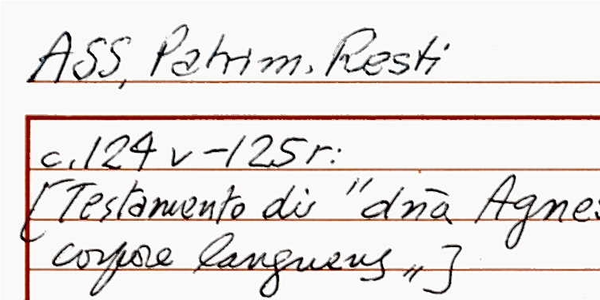 ASS, Patrim. Resti
c. 124 v - 125 r:
[Testamento di "dnā Agnes
corpore languens"]